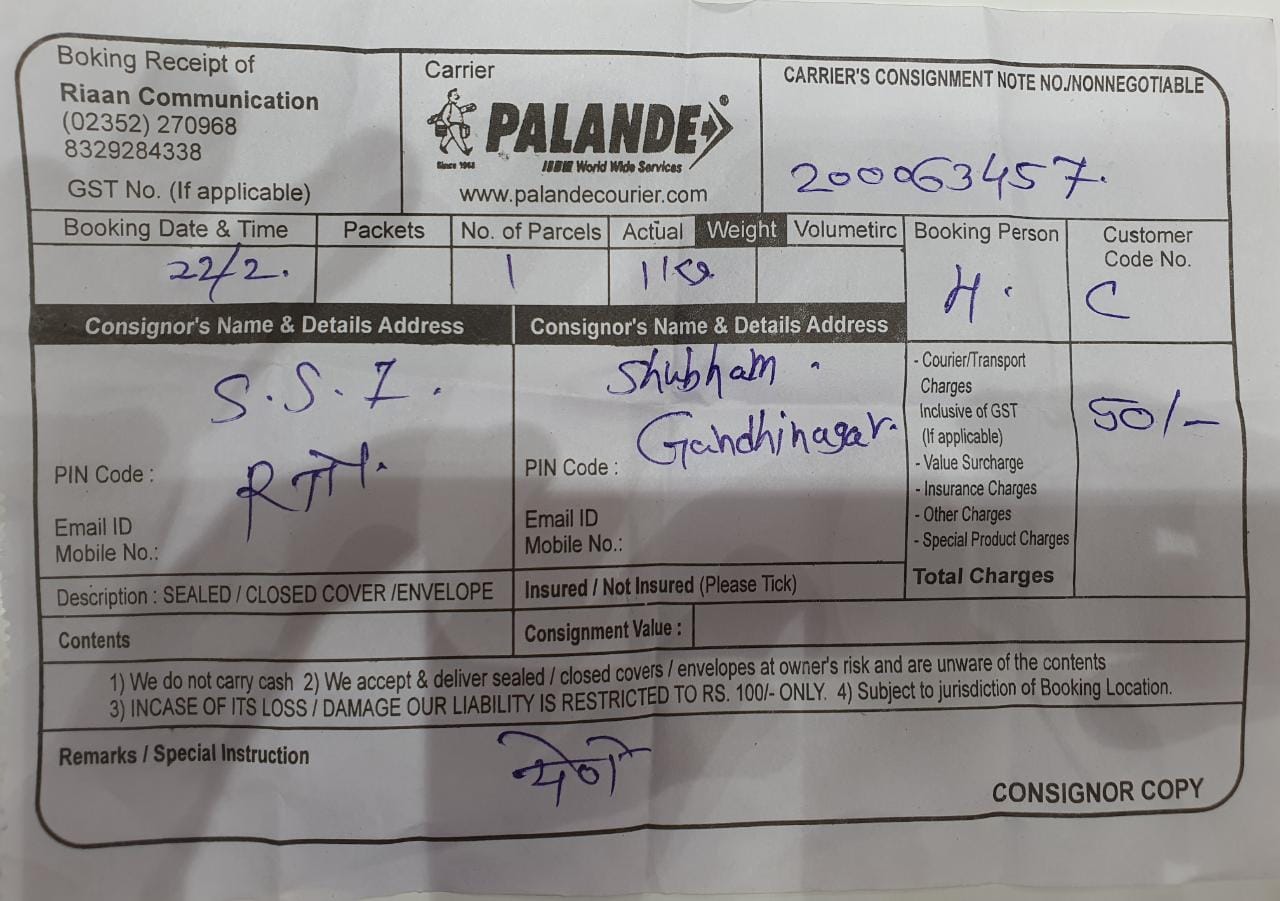 Boking Receipt of
Riaan Communication
(02352) 270968
8329284338
GST No. (If applicable)
Carrier
PALANDE®
Since 1968
World Wide Services
www.palandecourier.com
CARRIER'S CONSIGNMENT NOTE NO./NONNEGOTIABLE
200063457.
Booking Date & Time
22/2.
Packets
No. of Parcels
1
Actual Weight Volumetirc
Booking Person
H.
Customer
Code No.
C
Consignor's Name & Details Address
S.S.I.
PIN Code :
Email ID
Mobile No.:
Consignor's Name & Details Address
Shubham.
Gandhinagar.
PIN Code :
Email ID
Mobile No.:
- Courier/Transport
Charges
Inclusive of GST
(If applicable)
- Value Surcharge
- Insurance Charges
- Other Charges
- Special Product Charges
Total Charges
50/-
Description : SEALED / CLOSED COVER /ENVELOPE
Insured / Not Insured (Please Tick)
Contents
Consignment Value :
1) We do not carry cash 2) We accept & deliver sealed / closed covers / envelopes at owner's risk and are unware of the contents
3) INCASE OF ITS LOSS / DAMAGE OUR LIABILITY IS RESTRICTED TO RS. 100/- ONLY. 4) Subject to jurisdiction of Booking Location.
Remarks / Special Instruction
येणे
CONSIGNOR COPY